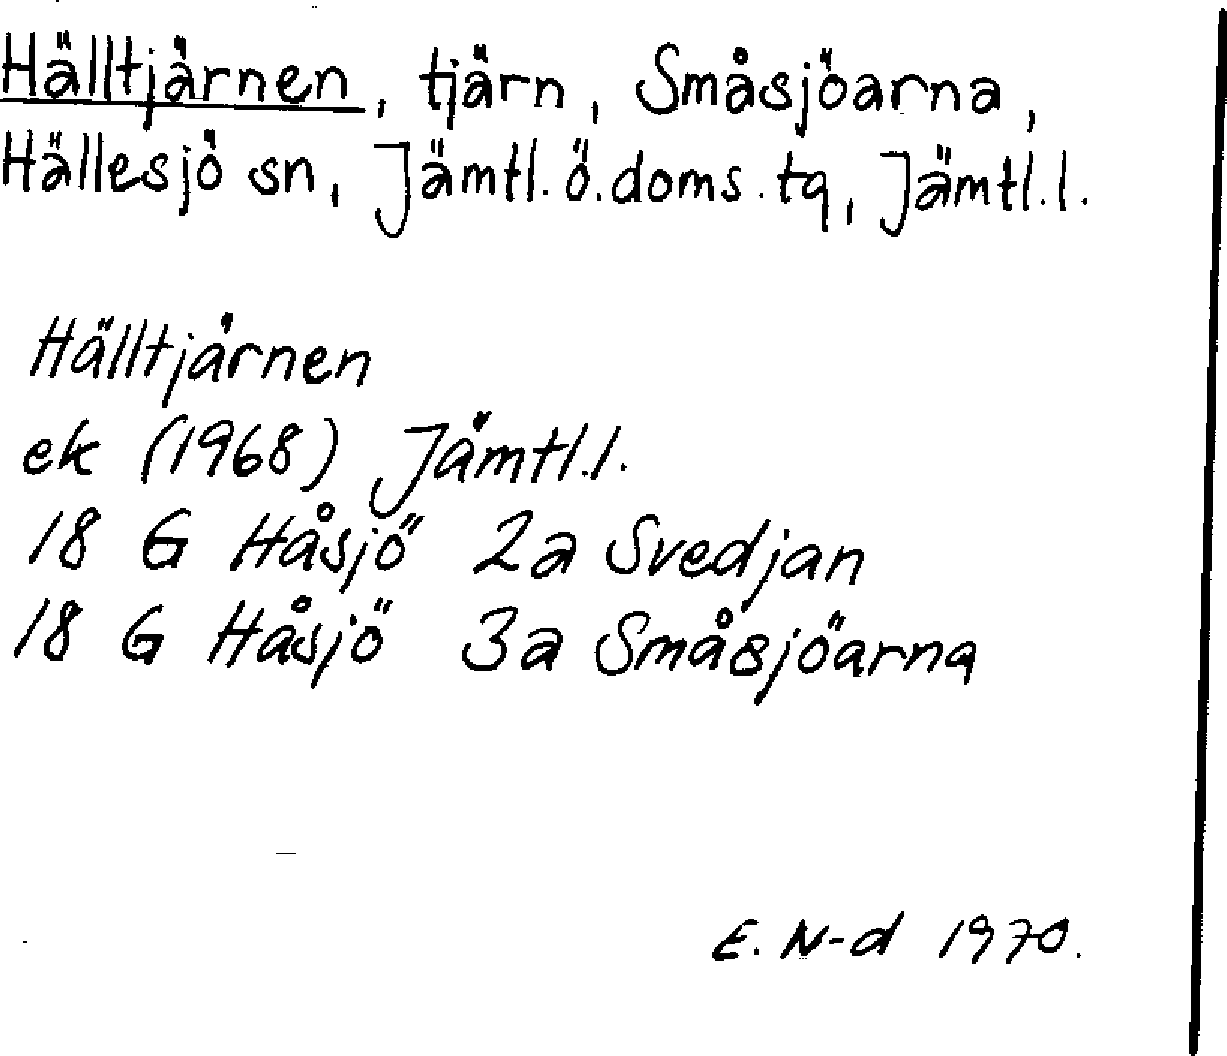 Hälltjärnen, tjärn, Småsjöarna,
Hällesjö sn, Jämtl. ö. doms. tg, Jämtl. l.
Hälltjärnen
ek (1968) Jämtl. l.
18 G Håsjö 2a Svedjan
18 G Håsjö 3a Småsjöarna
E. N-d 1970.